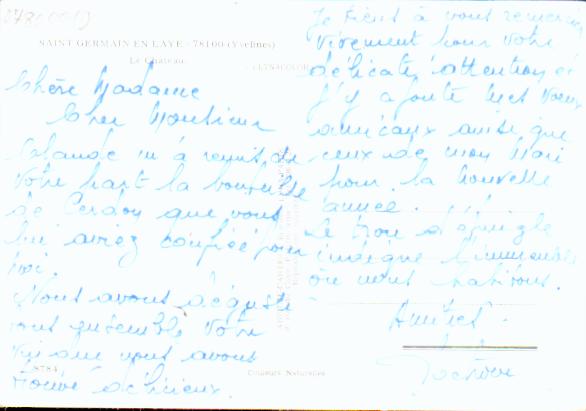 SAINT GERMAIN EN LAYE - 78100 (Yvelines)
Le Château
LYNACOLOR
Chère Madame
Cher Monsieur
Yolande m'a remis, de
votre part la bouteille
de Cerdon que vous
lui aviez confiée pour
moi.
Nous avons dégusté
tous ensemble votre
vin que nous avons
trouvé délicieux.
Je tiens à vous remercier
vivement pour votre
délicate attention et
j'y ajoute mes vœux
amicaux ainsi que
ceux de mon Mari
pour la nouvelle
année.
Le trou d'épingle
indique l'immeuble
où nous habitons.
Amitiés.
8784
Couleurs Naturelles